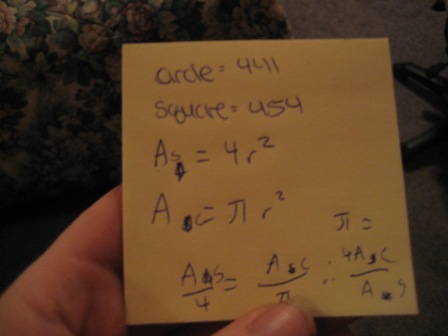 circle = 441
square = 454
As = 4r²
Ac = π r²
π =
As/4 = Ac/π ∴ 4Ac/As